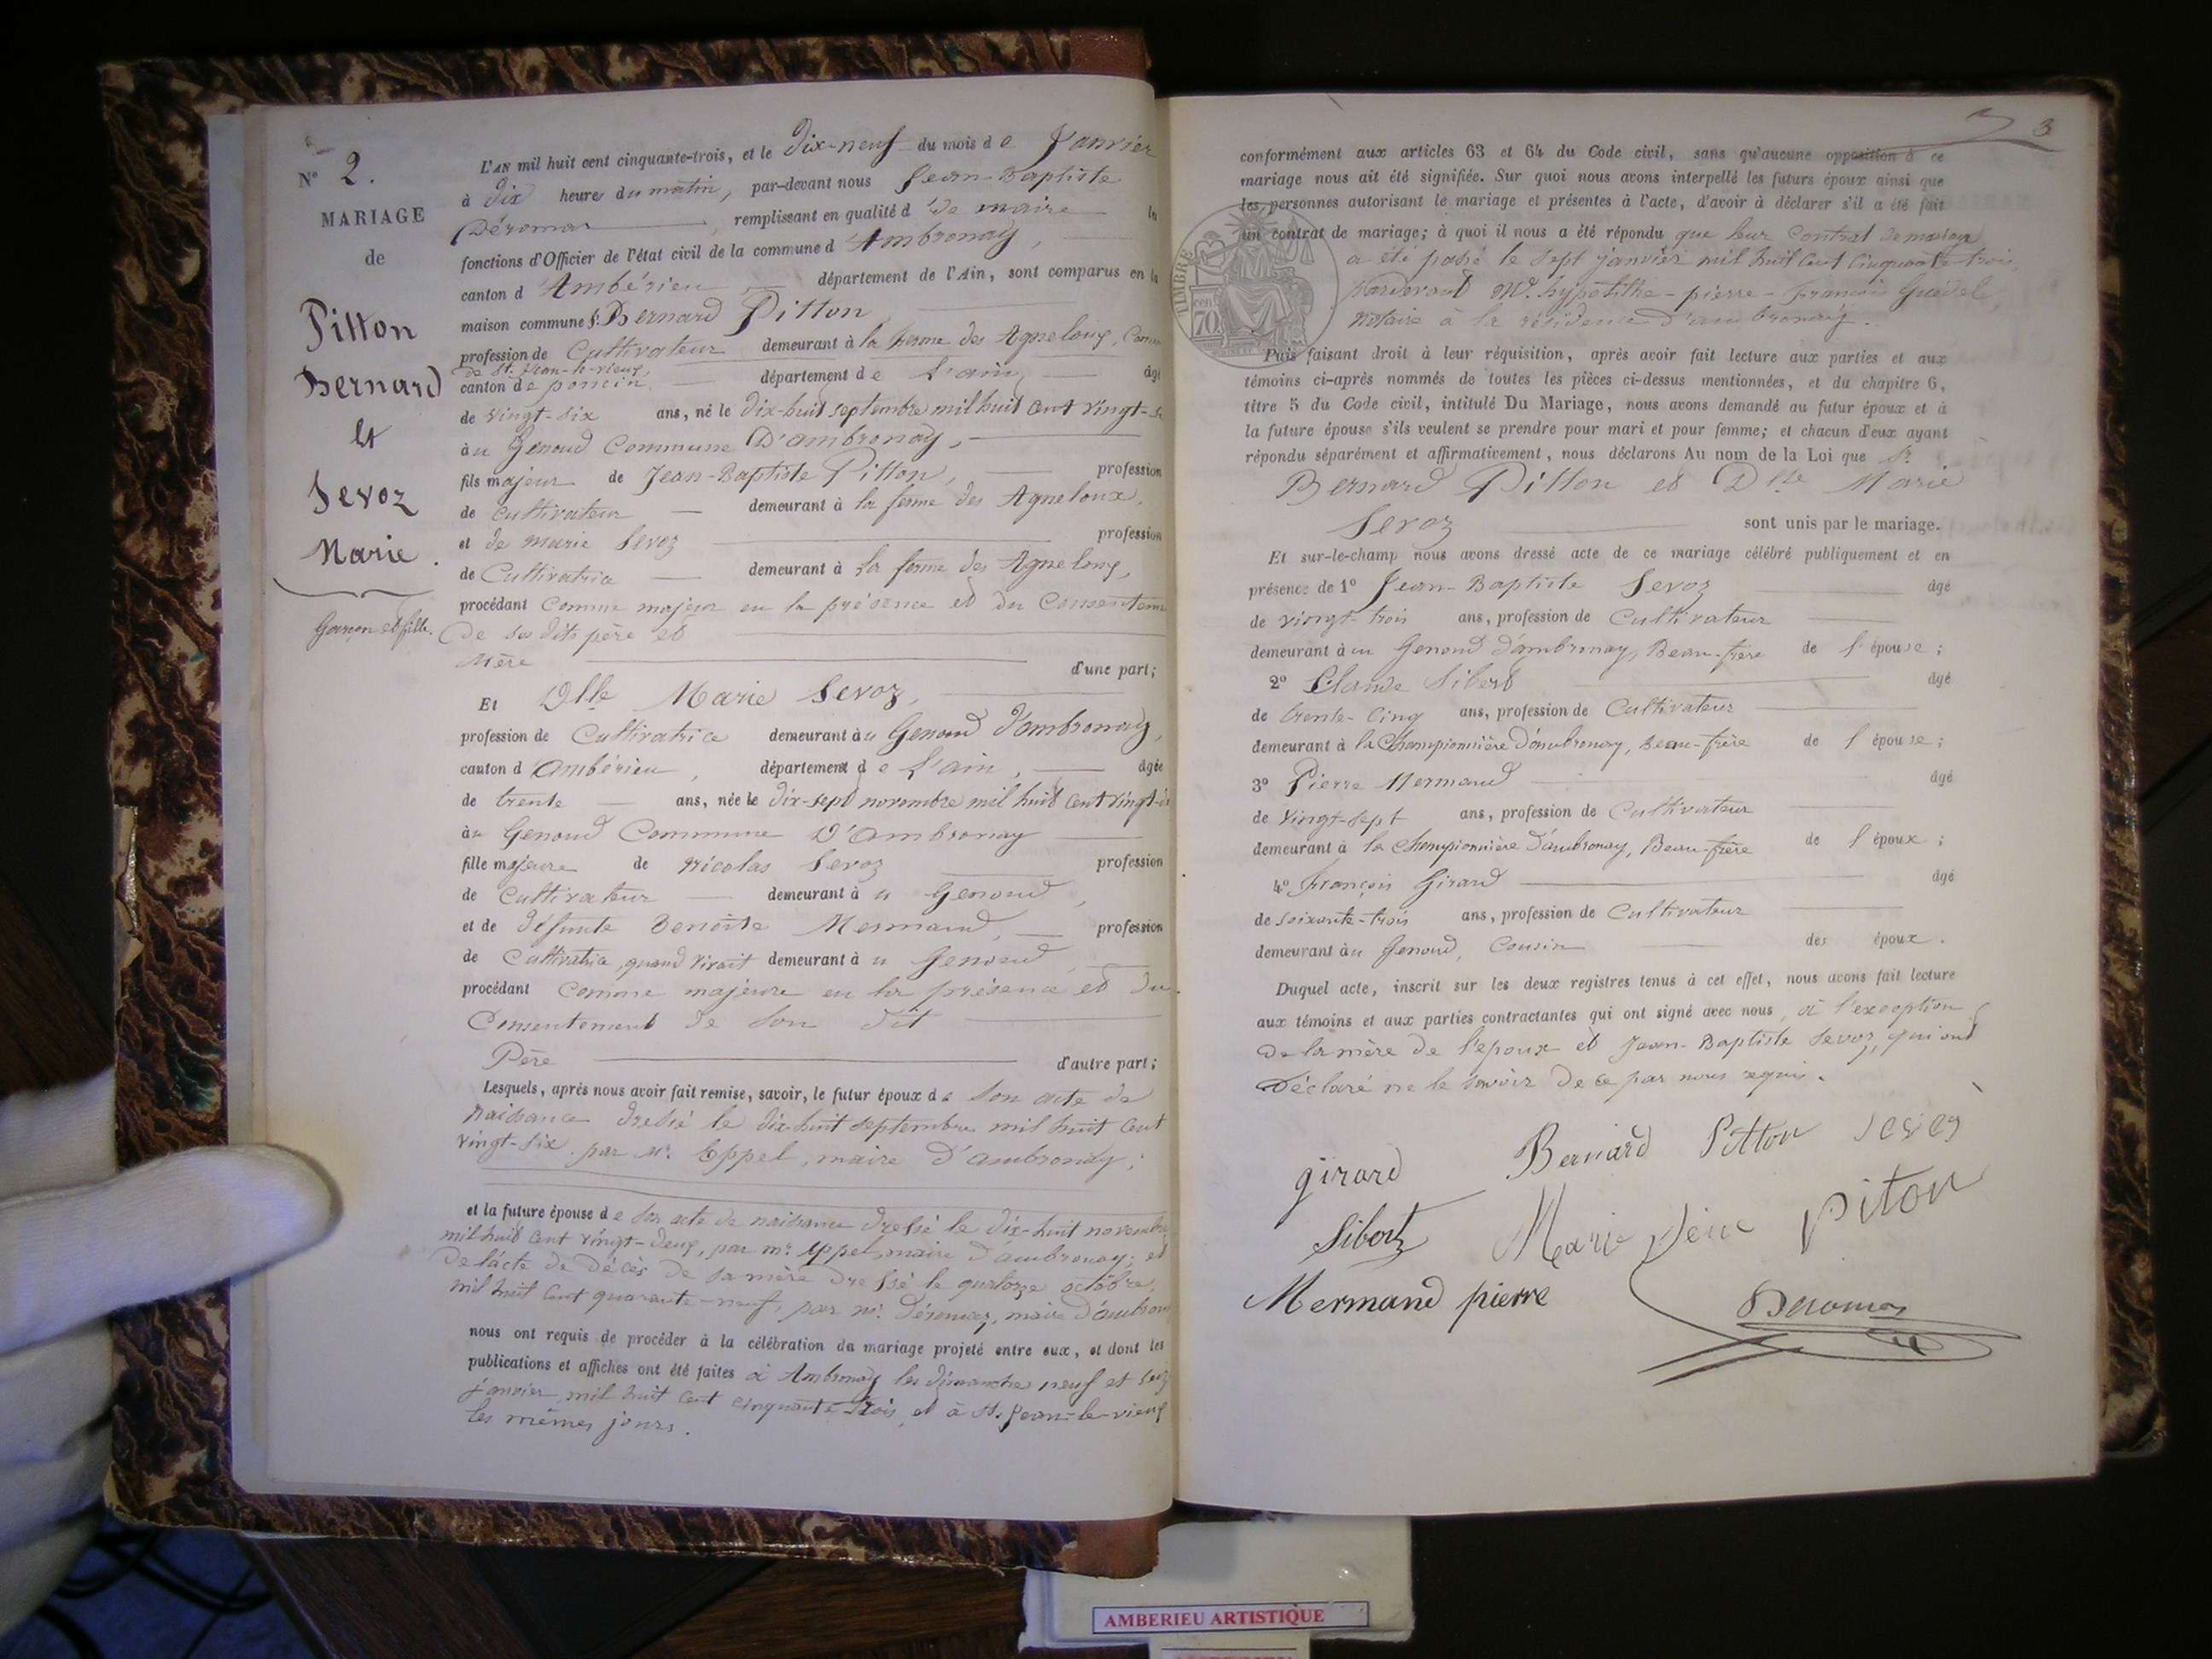 N° 2.
MARIAGE
de
Pitton
Bernard
et
Sevoz
Marie.
Garçon et fille.
L'AN mil huit cent cinquante-trois, et le dix-neuf du mois de Janvier
à dix heures du matin, par-devant nous Jean-Baptiste
Déromas, remplissant en qualité de maire les
fonctions d'Officier de l'état civil de la commune d'Ambronay,
canton d'Ambérieu, département de l'Ain, sont comparus en la
maison commune S. Bernard Pitton
profession de Cultivateur demeurant à la ferme des Agneloux, Com
de St. Jean-le-vieux,
canton de poncin, département de l'ain, âgé
de vingt-six ans, né le dix-huit septembre mil huit cent vingt-s
au Genoud Commune D'ambronay,
fils majeur de Jean-Baptiste Pitton, profession
de cultivateur demeurant à la ferme des Agneloux,
et de marie Sevoz profession
de Cultivatrice demeurant à la ferme des Agneloux,
procédant comme majeur en la présence et du Consenteme
de ses dits père et
Mère d'une part;
Et Dlle Marie Sevoz,
profession de Cultivatrice demeurant au Genoud d'ambronay,
canton d'ambérieu, département de l'ain, âgée
de trente ans, née le dix-sept novembre mil huit cent vingt-d
au Genoud Commune D'ambronay
fille majeure de Nicolas Sevoz profession
de Cultivateur demeurant au Genoud,
et de défunte Benoite Mermand, profession
de Cultivatrice, quand vivait demeurant au Genoud
procédant comme majeure en la présence et du
Consentement de son dit
Père d'autre part;
Lesquels, après nous avoir fait remise, savoir, le futur époux de son acte de
naissance dressé le dix-huit septembre mil huit cent
vingt-six par Mr. Eppel, maire D'ambronay;
et la future épouse de son acte de naissance dressé le dix-huit novembre
mil huit cent vingt-deux, par mr. Eppel, maire D'ambronay; et
De l'acte de décès de sa mère dressé le quatorze octobre,
mil huit cent quarante-neuf, par mr. Déromas, maire D'ambron
nous ont requis de procéder à la célébration du mariage projeté entre eux, et dont les
publications et affiches ont été faites à Ambronay les dimanches neuf et seiz
janvier mil huit cent cinquante trois, et à St. Jean-le-vieux
les mêmes jours.
3
conformément aux articles 63 et 64 du Code civil, sans qu'aucune opposition à ce
mariage nous ait été signifiée. Sur quoi nous avons interpellé les futurs époux ainsi que
les personnes autorisant le mariage et présentes à l'acte, d'avoir à déclarer s'il a été fait
un contrat de mariage; à quoi il nous a été répondu que leur Contrat de mariage
a été passé le sept janvier mil huit cent cinquante-trois,
pardevant Me. hypolithe-pierre-françois Guedel,
notaire à la résidence D'ambronay.
TIMBRE
cent
70
Puis faisant droit à leur réquisition, après avoir fait lecture aux parties et aux
témoins ci-après nommés de toutes les pièces ci-dessus mentionnées, et du chapitre 6,
titre 5 du Code civil, intitulé Du Mariage, nous avons demandé au futur époux et à
la future épouse s'ils veulent se prendre pour mari et pour femme; et chacun d'eux ayant
répondu séparément et affirmativement, nous déclarons Au nom de la Loi que Sr.
Bernard Pitton et Dlle Marie
Sevoz sont unis par le mariage.
Et sur-le-champ nous avons dressé acte de ce mariage célébré publiquement et en
présence de 1° Jean-Baptiste Sevoz âgé
de vingt-trois ans, profession de Cultivateur
demeurant au Genoud d'ambronay, Beau-frère de l'épouse;
2° Claude Sibert âgé
de trente-cinq ans, profession de Cultivateur
demeurant à la Championnière d'ambronay, Beau-frère de l'épouse;
3° Pierre Mermand âgé
de vingt-sept ans, profession de Cultivateur
demeurant à la Championnière d'ambronay, Beau-frère de l'époux;
4° François Girard âgé
de soixante-trois ans, profession de Cultivateur
demeurant au Genoud, Cousin des époux.
Duquel acte, inscrit sur les deux registres tenus à cet effet, nous avons fait lecture
aux témoins et aux parties contractantes qui ont signé avec nous, à l'exception
De la mère de l'époux et Jean-Baptiste Sevoz, qui ont
Déclaré ne le savoir de ce par nous requis.
girard Bernard Pitton sevoz
Sibert Marie piton
Mermand pierre Deromas
AMBERIEU ARTISTIQUE